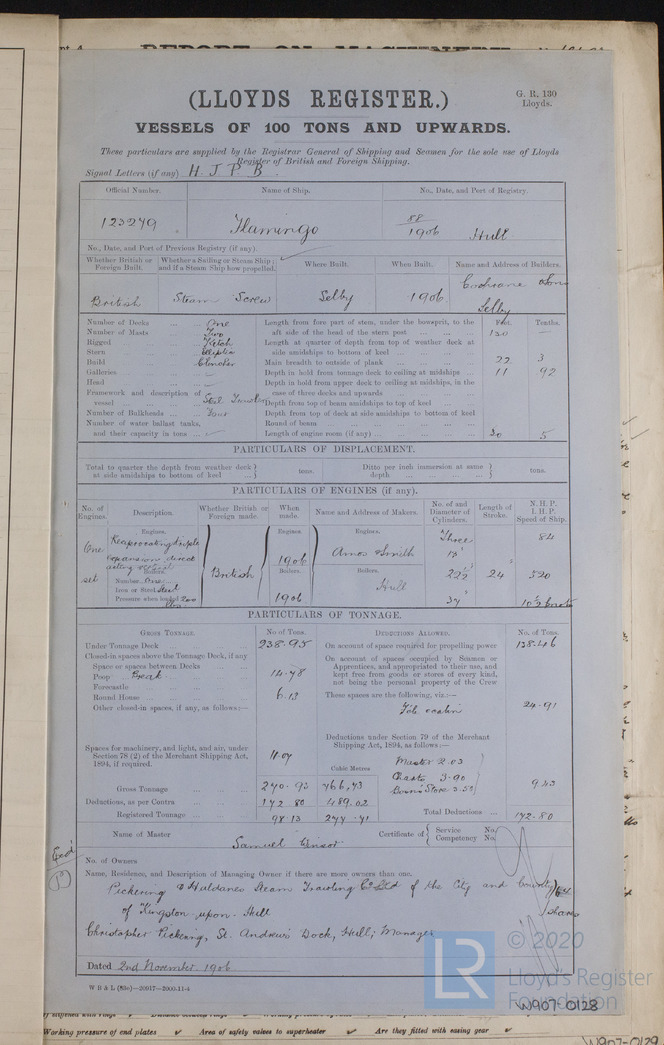 REPORT ON MACHINERY
(LLOYDS REGISTER.)
G. R. 130
Lloyds.
VESSELS OF 100 TONS AND UPWARDS.
These particulars are supplied by the Registrar General of Shipping and Seamen for the sole use of Lloyds
Register of British and Foreign Shipping.
Signal Letters (if any) H. J. P. B.
Official Number. Name of Ship. No., Date, and Port of Registry.
123279 Flamingo 88/1906 Hull
No., Date, and Port of Previous Registry (if any).
Whether British or Foreign Built. Whether a Sailing or Steam Ship; and if a Steam Ship how propelled. Where Built. When Built. Name and Address of Builders.
British Steam Screw Selby 1906 Cochrane & Sons Selby
Number of Decks One Length from fore part of stem, under the bowsprit, to the Feet. Tenths.
Number of Masts Two aft side of the head of the stern post 130 —
Rigged Ketch Length at quarter of depth from top of weather deck at
Stern Elliptic side amidships to bottom of keel
Build Clencher Main breadth to outside of plank 22 3
Galleries Depth in hold from tonnage deck to ceiling at midships 11 92
Head Depth in hold from upper deck to ceiling at midships, in the
Framework and description of case of three decks and upwards
vessel Steel Trawler Depth from top of beam amidships to top of keel
Number of Bulkheads Four Depth from top of deck at side amidships to bottom of keel
Number of water ballast tanks, Round of beam
and their capacity in tons Length of engine room (if any) 30 5
PARTICULARS OF DISPLACEMENT.
Total to quarter the depth from weather deck at side amidships to bottom of keel tons. Ditto per inch immersion at same depth tons.
PARTICULARS OF ENGINES (if any).
No. of Engines. Description. Whether British or Foreign made. When made. Name and Address of Makers. No. of and Diameter of Cylinders. Length of Stroke. N. H. P. I. H. P. Speed of Ship.
Engines. Engines Engines.
One Reciprocating triple Three 84
expansion direct 1906 Amos & Smith 13"
acting vertical
set Boilers. British Boilers. Boilers. 22½" 24 520
Number, One Hull
Iron or Steel Steel
Pressure when loaded 200 lbs 1906 37" 10½ knots
PARTICULARS OF TONNAGE.
GROSS TONNAGE. No. of Tons. DEDUCTIONS ALLOWED. No. of Tons.
Under Tonnage Deck 238.95 On account of space required for propelling power 138.46
Closed-in spaces above the Tonnage Deck, if any On account of spaces occupied by Seamen or
Space or spaces between Decks Apprentices, and appropriated to their use, and
Poop Break 14.78 kept free from goods or stores of every kind,
Forecastle not being the personal property of the Crew
Round House 6.13 These spaces are the following, viz.:—
Other closed-in spaces, if any, as follows:— 24.91
Deductions under Section 79 of the Merchant
Shipping Act, 1894, as follows:—
Spaces for machinery, and light, and air, under
Section 78 (2) of the Merchant Shipping Act, 11.07 Master 2.03
1894, if required. Cubic Metres Charts 3.90
Gross Tonnage 270.93 766.73 Bosn's Store 3.50 9.43
Deductions, as per Contra 172.80 489.02
Registered Tonnage 98.13 277.71 Total Deductions 172.80
Name of Master Samuel Certificate of Service No.
Competency No.
No. of Owners
Name, Residence, and Description of Managing Owner if there are more owners than one.
Pickering & Haldanes Steam Trawling Co. Ltd of the City and County 64
of Kingston upon Hull shares
Christopher Pickering, St. Andrews Dock, Hull; Manager
Dated 2nd November 1906
W B & L (88c)—20917—2000.11-4
© 2020
LR
Lloyd's Register
Foundation
W907-0128
Working pressure of end plates Area of safety valves to superheater Are they fitted with easing gear
W907-0129